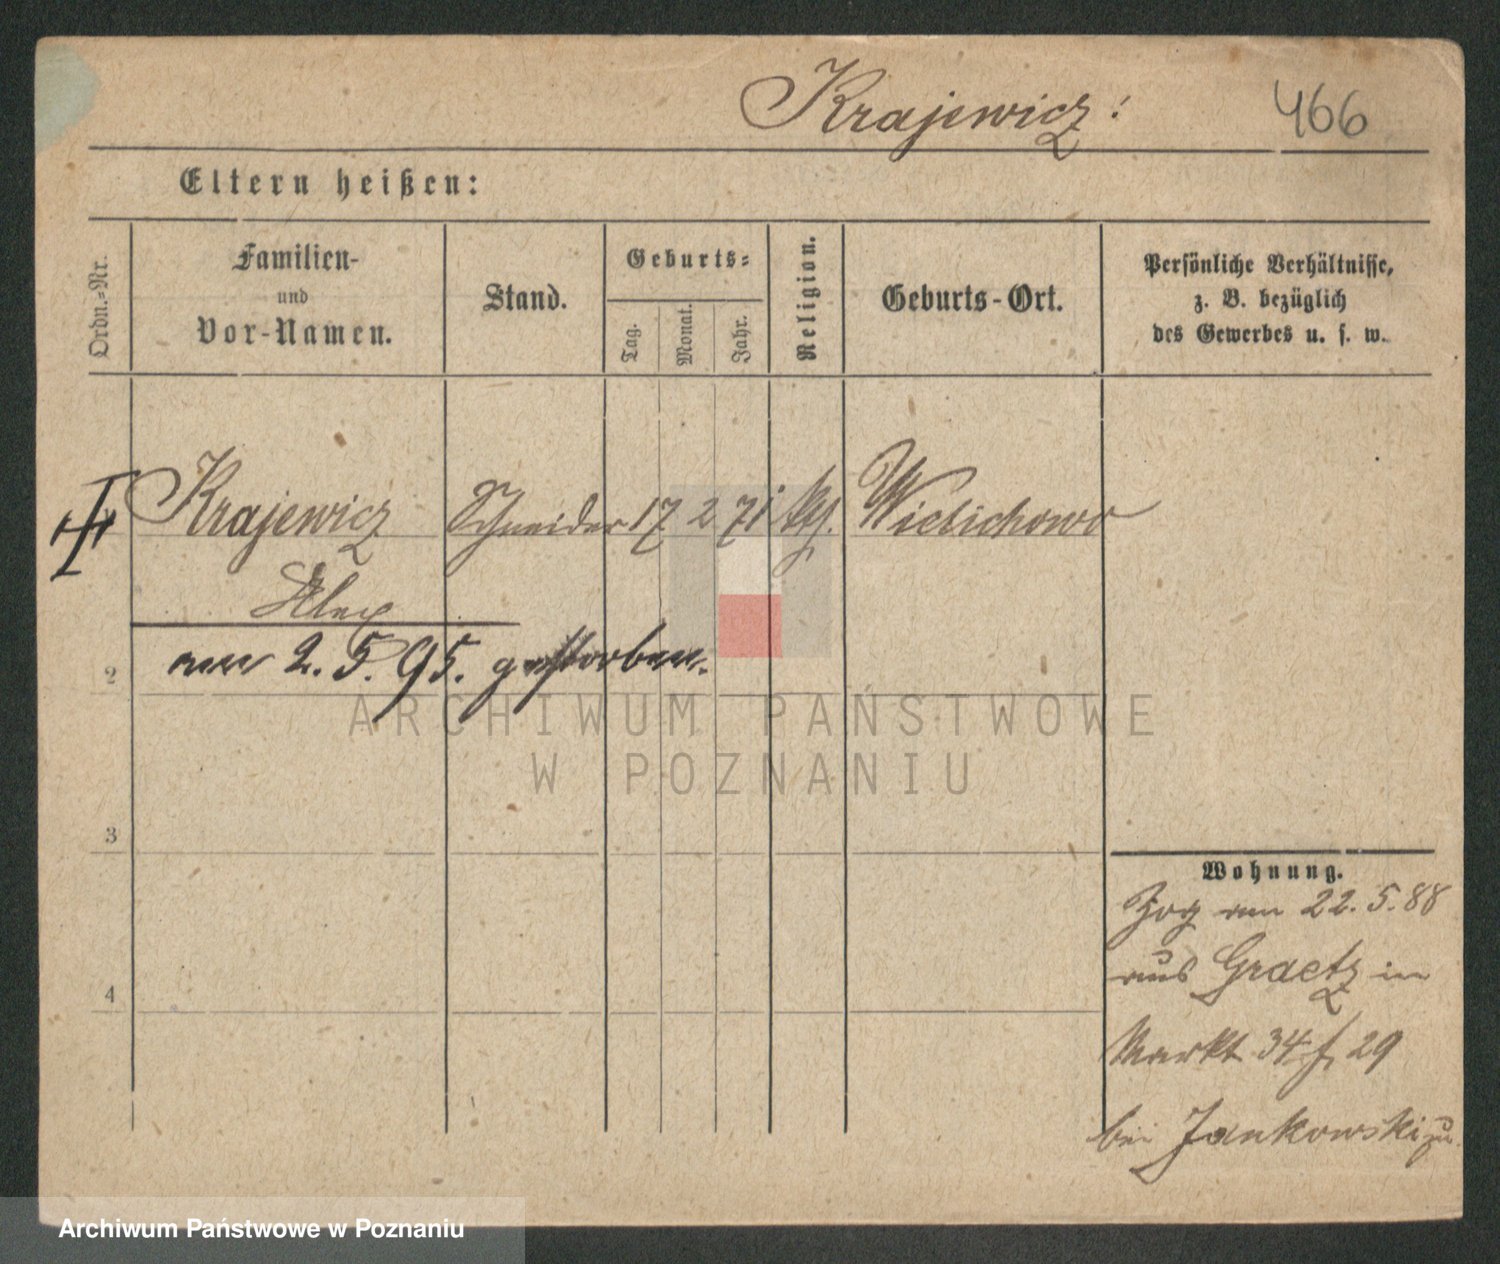 Krajewicz.
466
Eltern heißen:
Ordn.-Nr.
Familien-
und
Vor-Namen.
Stand.
Geburts-
Tag.
Monat.
Jahr.
Religion.
Geburts-Ort.
Persönliche Verhältnisse,
z. B. bezüglich
des Gewerbes u. s. w.
Krajewicz Schneider 17 2 71 kth. Wielichowo
Alex
am 2. 5. 95. gestorben.
2
3
4
Wohnung.
Zog am 22. 5. 88
aus Graetz in
Markt 34 f, 29
bei Jankowski zu.
ARCHIWUM PAŃSTWOWE
W POZNANIU
Archiwum Państwowe w Poznaniu